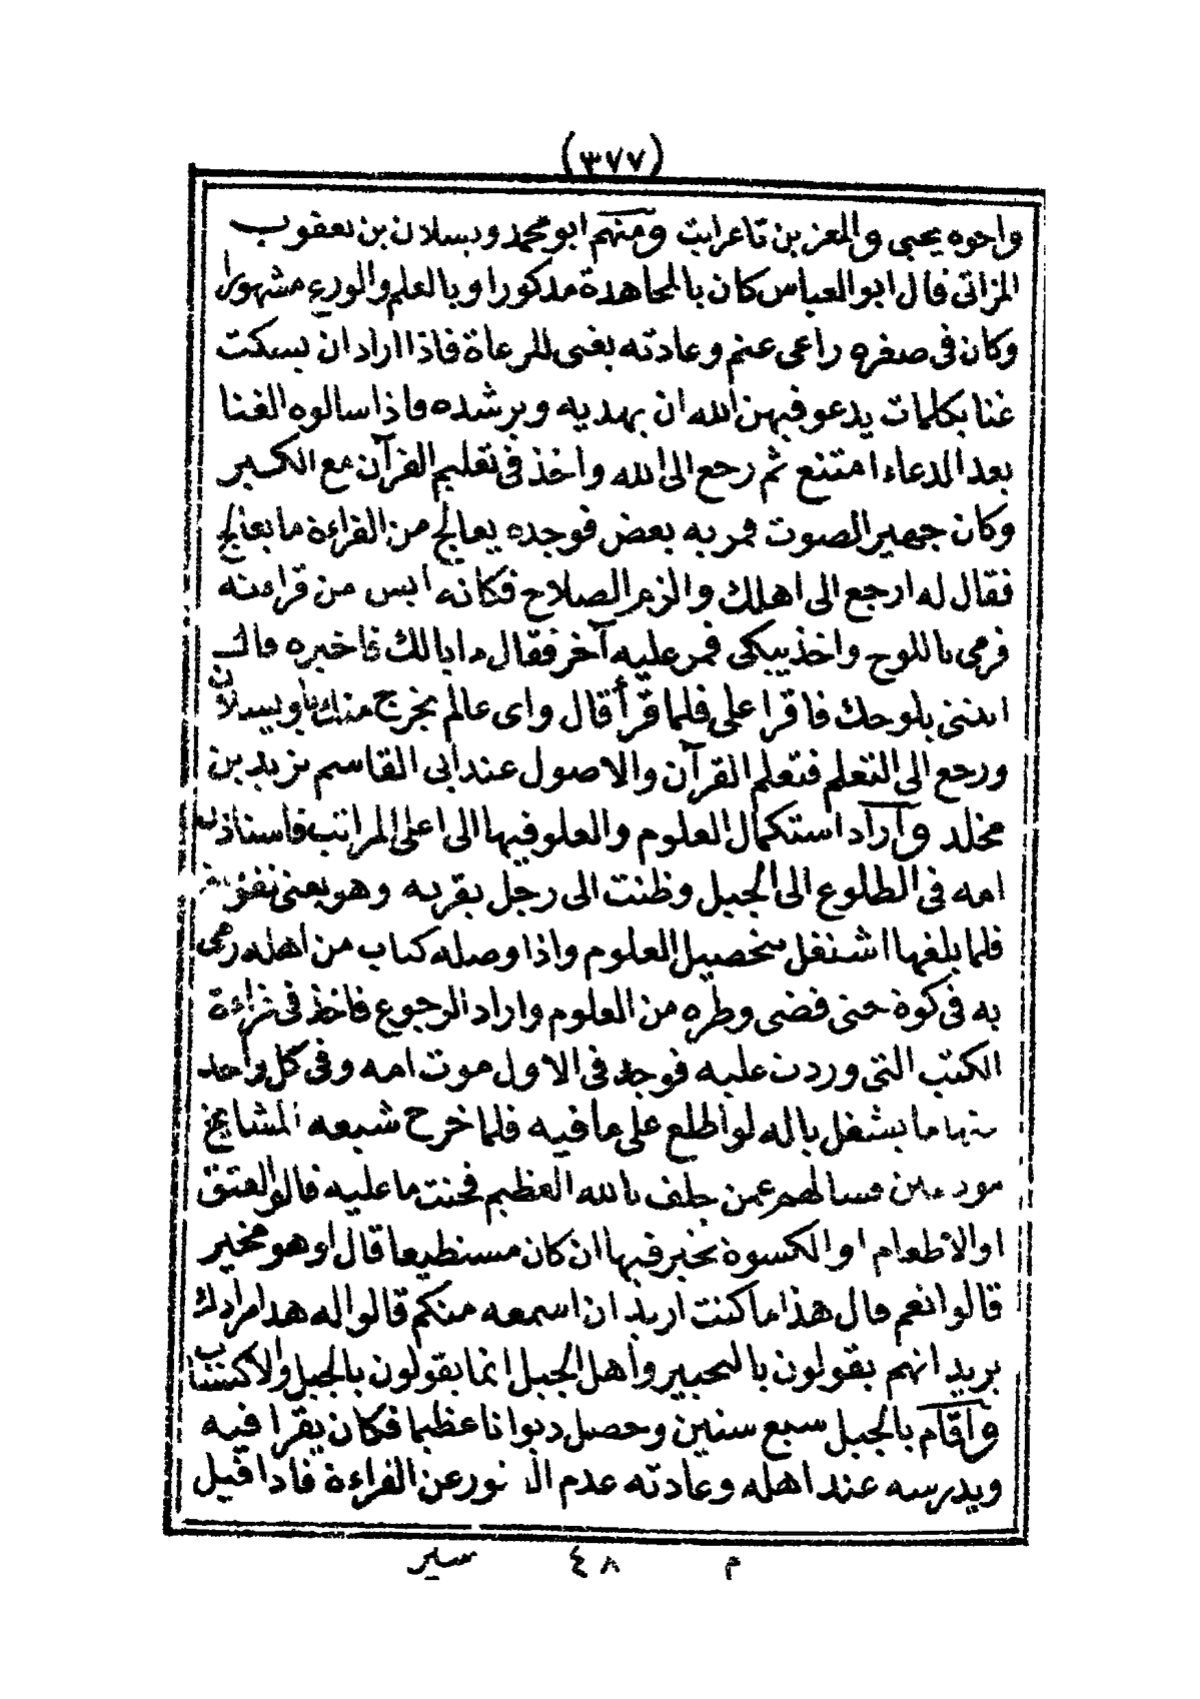 (٣٧٧)
واخوه يحيى والمعز بن تاعرابت ومنهم ابو محمد ويسلان بن يعقوب
المزاتى قال ابو العباس كان بالمجاهدة مذكورا وبالعلم والورع مشهورا
وكان فى صغره راعى غنم وعادته يغنى للرعاة فاذا اراد ان يسكت
غنا بكلمات يدعو فيهن الله ان يهديه ويرشده فاذا سالوه الغنا
بعد الدعاء امتنع ثم رجع الى الله واخذ فى تعليم القرآن مع الكبر
وكان جهير الصوت فمر به بعض فوجده يعالج من القراءة ما يعالج
فقال له ارجع الى اهلك والزم الصلاح فكانه أيس من قراءته
فرمى باللوح واخذ يبكى فمر عليه آخر فقال ما بالك فاخبره قال
ايتنى بلوحك فاقرا على فلما قرأ قال واى عالم يخرج منك يا ويسلان
ورجع الى التعلم فتعلم القرآن والاصول عند أبى القاسم يزيد بن
مخلد وأراد استكمال العلوم والعلو فيها الى اعلى المراتب فاستاذن
امه فى الطلوع الى الجبل وظنت الى رجل بقربه وهو يعنى نفوسة
فلما بلغها اشتغل بتحصيل العلوم واذا وصله كتاب من اهله رمى
به فى كوة حتى قضى وطره من العلوم واراد الرجوع فاخذ فى قراءة
الكتب التى وردت عليه فوجد فى الاول موت امه وفى كل واحد
منها ما يشغل باله لو اطلع على ما فيه فلما خرج شيعه المشايخ
مودعين فسالهم عمن حلف بالله العظيم فحنث ما عليه قالوا العتق
او الاطعام او الكسوة يخير فيها ان كان مستطيعا قال اوهو مخير
قالوا نعم قال هذا ما كنت اريد ان اسمعه منكم قالوا له هذا مرادك
يريد انهم يقولون بالتخيير وأهل الجبل انما يقولون بالجبل والاكتساب
وأقام بالجبل سبع سنين وحصل ديوانا عظيما فكان يقرا فيه
ويدرسه عند اهله وعادته عدم النور عن القراءة فاذا قيل
م ٤٨ سير